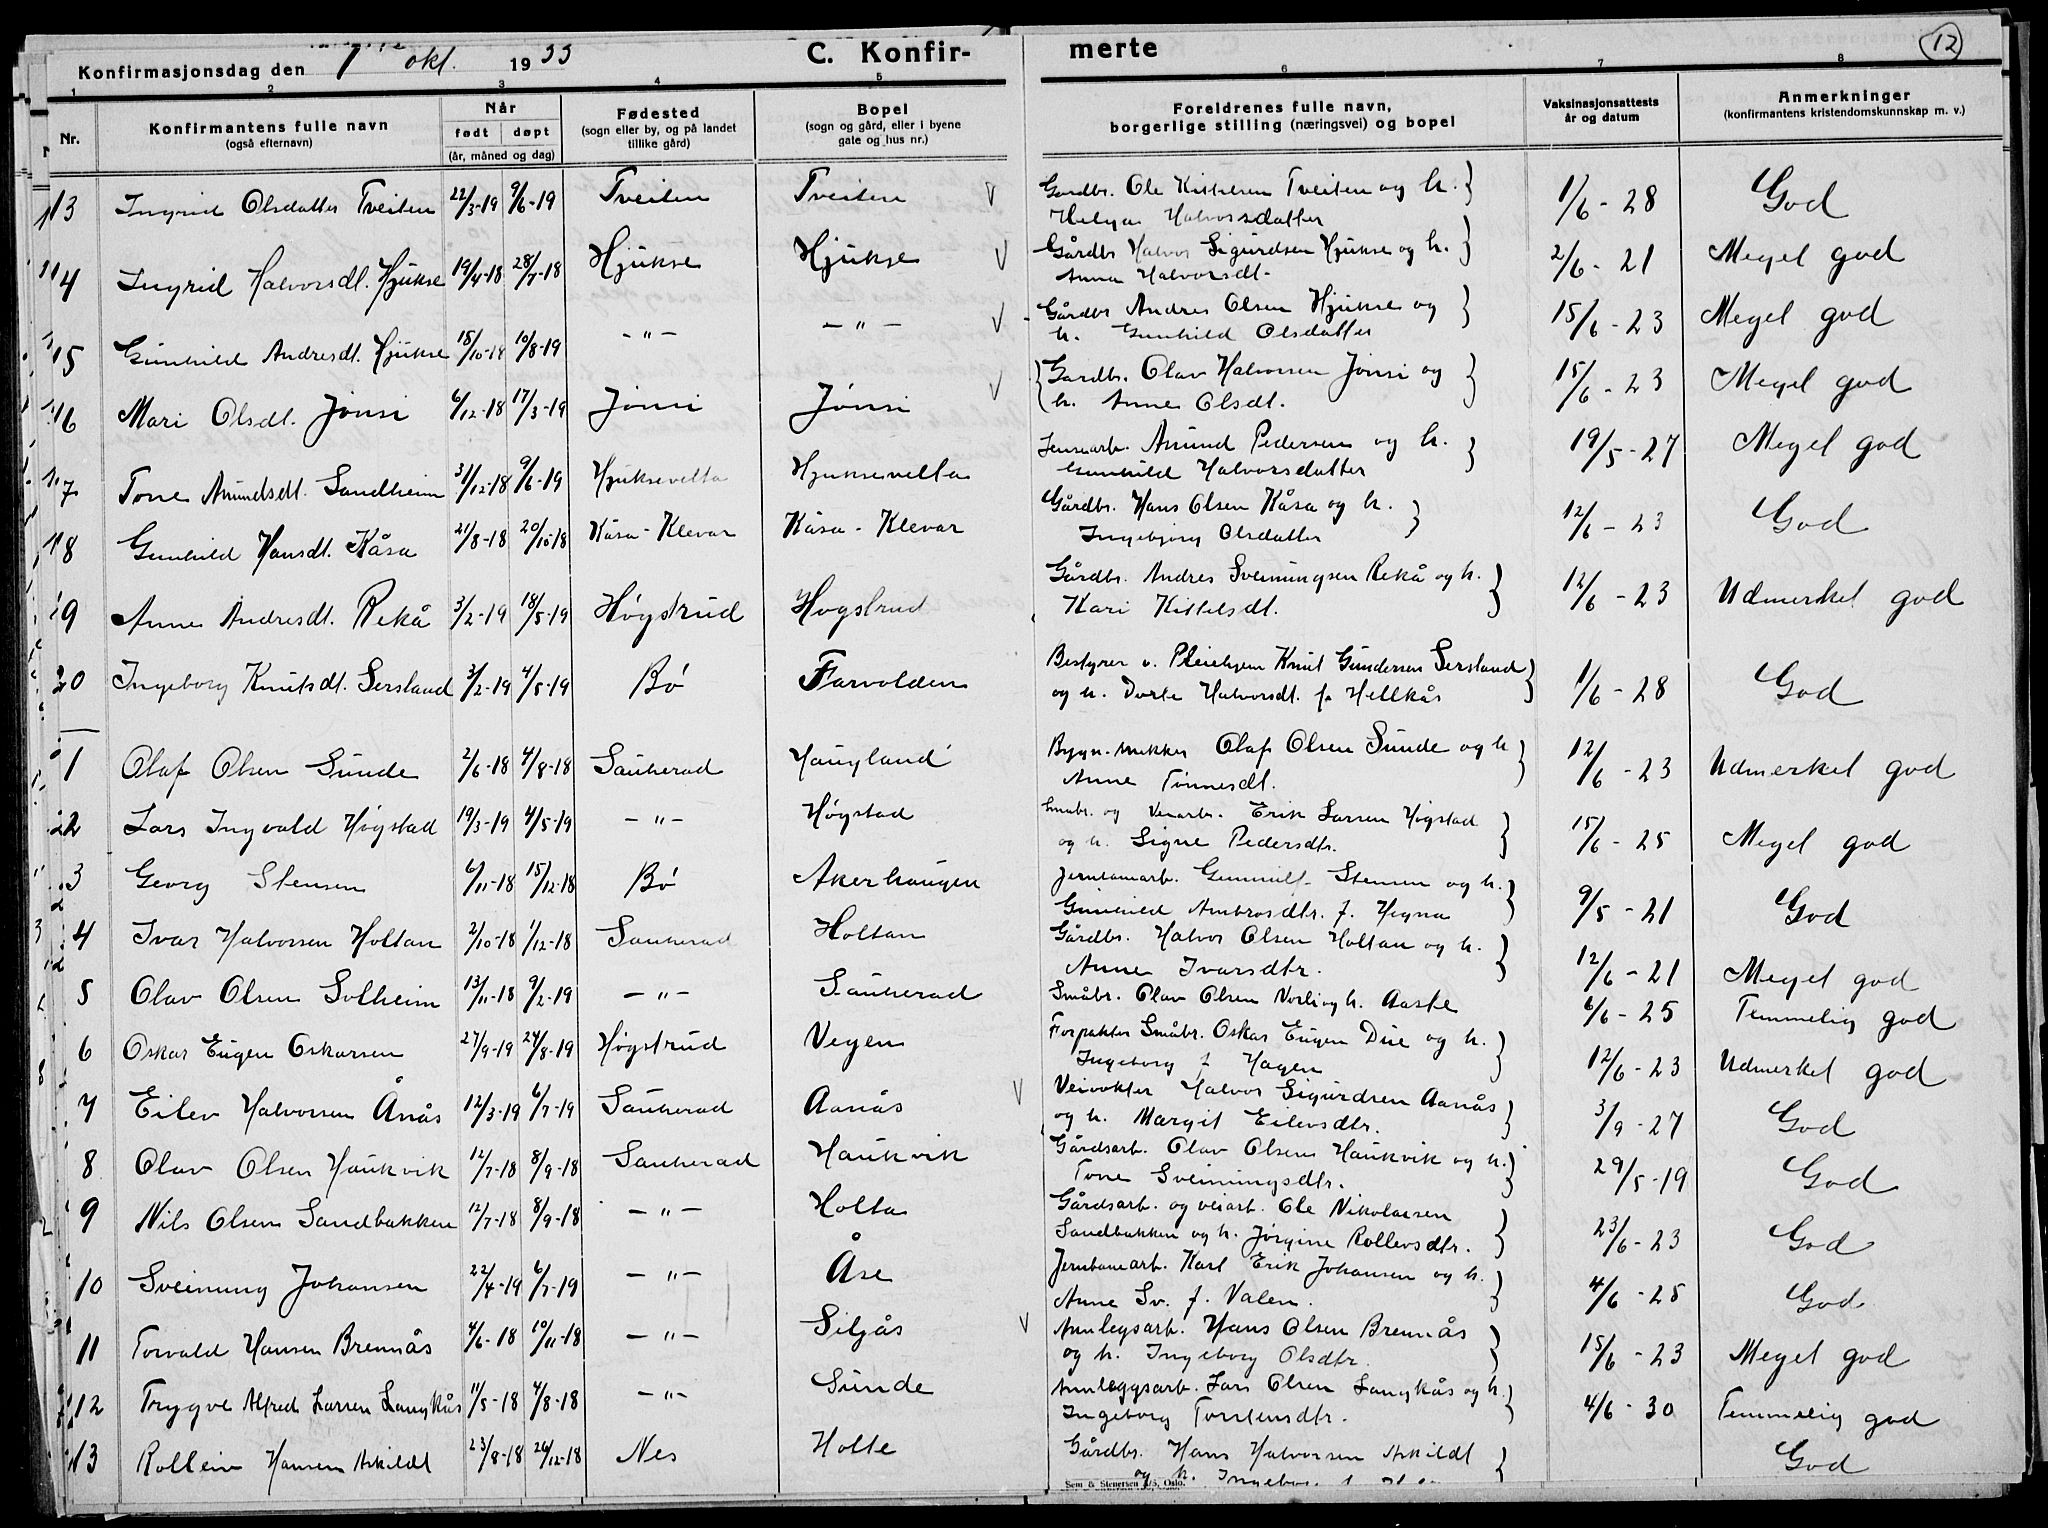 Konfirmasjonsdag den 1 okt. 1933 C. Konfirmerte 12
1 2 3 4 5 6 7 8
Nr. Konfirmantens fulle navn (også efternavn) Når født døpt (år, måned og dag) Fødested (sogn eller by, og på landet tillike gård) Bopel (sogn og gård, eller i byene gate og hus nr.) Foreldrenes fulle navn, borgerlige stilling (næringsvei) og bopel Vaksinasjonsattests år og datum Anmerkninger (konfirmantens kristendomskunnskap m. v.)
13 Ingrid Olsdatter Tveiten 22/3-19 9/6-19 Tveiten Tveiten Gardbr. Ole Kittelsen Tveiten og h. 1/6-28 God
Helga Halvorsdatter
14 Ingrid Halvorsdt. Hjukse 19/4-18 28/7-18 Hjukse Hjukse Gårdbr Halvor Sigurdsen Hjukse og h. 2/6-21 Meget god
Anna Halvorsdt.
15 Gunhild Andresdt. Hjukse 18/10-18 10/8-19 -"- -"- Gårdbr Andres Olsen Hjukse og 15/6-23 Meget god
h. Gunhild Olsdatter
16 Mari Olsdt. Jønsi 6/12-18 17/3-19 Jønsi Jønsi Gardbr. Olav Halvorsen Jønsi og 15/6-23 Meget god
h. Anne Olsdt.
17 Tone Amundsdt. Sandheim 31/12-18 9/6-19 Hjuksevelta Hjuksevelta Amund Pedersen og h. 19/5-27 Meget god
Gunhild Halvorsdatter
18 Gunhild Hansdt. Kåsa 21/8-18 20/10-18 Kåsa-Klevar Kåsa-Klevar Gårdbr. Hans Olsen Kåsa og h. 12/6-23 God
Ingebjörg Olsdatter
19 Anne Andresdt. Rekå 3/2-19 18/5-19 Høgstrud Høgstrud Gårdbr. Andres Sveinungsen Rekå og h. 12/6-23 Udmerket god
Kari Kittelsdt.
20 Ingeborg Knutsdt. Sersland 3/2-19 4/5-19 Bø Farvolden Bestyrer v. Pleiehjem Knut Gundersen Sersland 1/6-28 God
og h. Dorte Halvorsdt. f. Hellkås
1 Olaf Olsen Sunde 2/6-18 4/8-18 Sauherad Haugland Bygn. snekker Olaf Olsen Sunde og h 12/6-23 Udmerket god
Anne Tønnesdt.
2 Lars Ingvald Høgstad 19/3-19 4/5-19 -"- Høgstad Småbr. og Veiarb. Erik Larsen Høgstad 15/6-25 Meget god
og h. Signe Pedersdtr.
3 Georg Stensen 6/11-18 15/12-18 Bø Akerhaugen Jernbanearb. Gunnulf Stensen og h. 9/5-21 God
Gunhild Ambrosdtr. f. Hegna
4 Ivar Halvorsen Holtan 2/10-18 1/12-18 Sauherad Holtan Gårdbr. Halvor Olsen Holtan og h. 12/6-21 Meget god
Anne Ivarsdtr.
5 Olav Olsen Solheim 13/11-18 9/2-19 -"- Sauherad Småbr. Olav Olsen Vorli og h. Aaste 6/6-25 Temmelig god
6 Oskar Eugen Oskarsen 27/9-19 24/8-19 Høgstrud Vegen Forpakter Småbr. Oskar Eugen Due og h. 12/6-23 Udmerket god
Ingeborg f. Hagen
7 Eilev Halvorsen Ånås 12/3-19 6/7-19 Sauherad Aanås Veivokter Halvor Sigurdsen Aanås 3/9-27 God
og h. Margit Eilevsdtr.
8 Olav Olsen Haukvik 12/7-18 8/9-18 Sauherad Haukvik Gårdsarb. Olav Olsen Haukvik og h. 29/5-19 God
Tone Sveinungsdtr.
9 Nils Olsen Sandbakken 12/7-18 8/9-18 -"- Holta Gårdsarb. og veiarb. Ole Nikolaisen 23/6-23 God
Sandbakken og h. Jørgine Rollevsdtr.
10 Sveinung Johansen 22/4-19 6/7-19 -"- Åse Jernbanearb. Karl Erik Johansen og h. 4/6-28 God
Anne Sv. f. Valen.
11 Torvald Hansen Brennås 4/6-18 10/11-18 -"- Siljås Anlegsarb. Hans Olsen Brennås 15/6-23 Meget god
og h. Ingeborg Olsdtr.
12 Trygve Alfred Larsen Langkås 11/5-18 4/8-18 -"- Sunde Anleggsarb. Lars Olsen Langkås og h. 4/6-30 Temmelig god
Ingeborg Torstensdtr.
13 Rollein Hansen Askildt 23/8-18 26/12-18 Nes Holte Gårdbr. Hans Halvorsen Askildt God
og h. Ingebor
Sem & Stenersen A/S, Oslo.